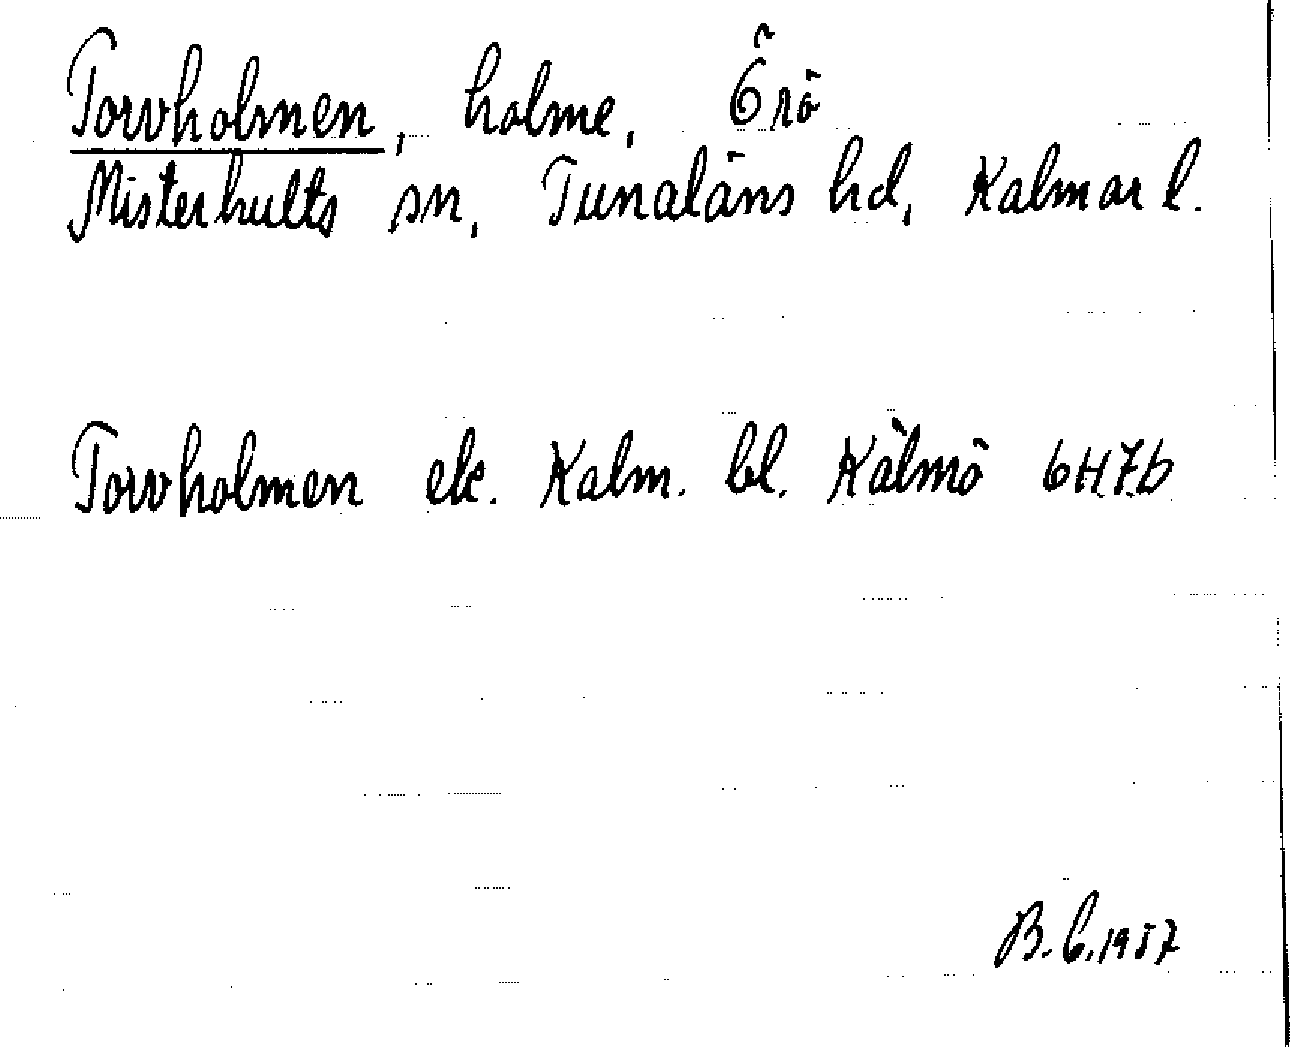 Torvholmen, holme, Örö
Misterhults sn, Tunaläns hd, Kalmar l.
Torvholmen ek. Kalm. bl. Kälmö 6H7b
B.C.1957